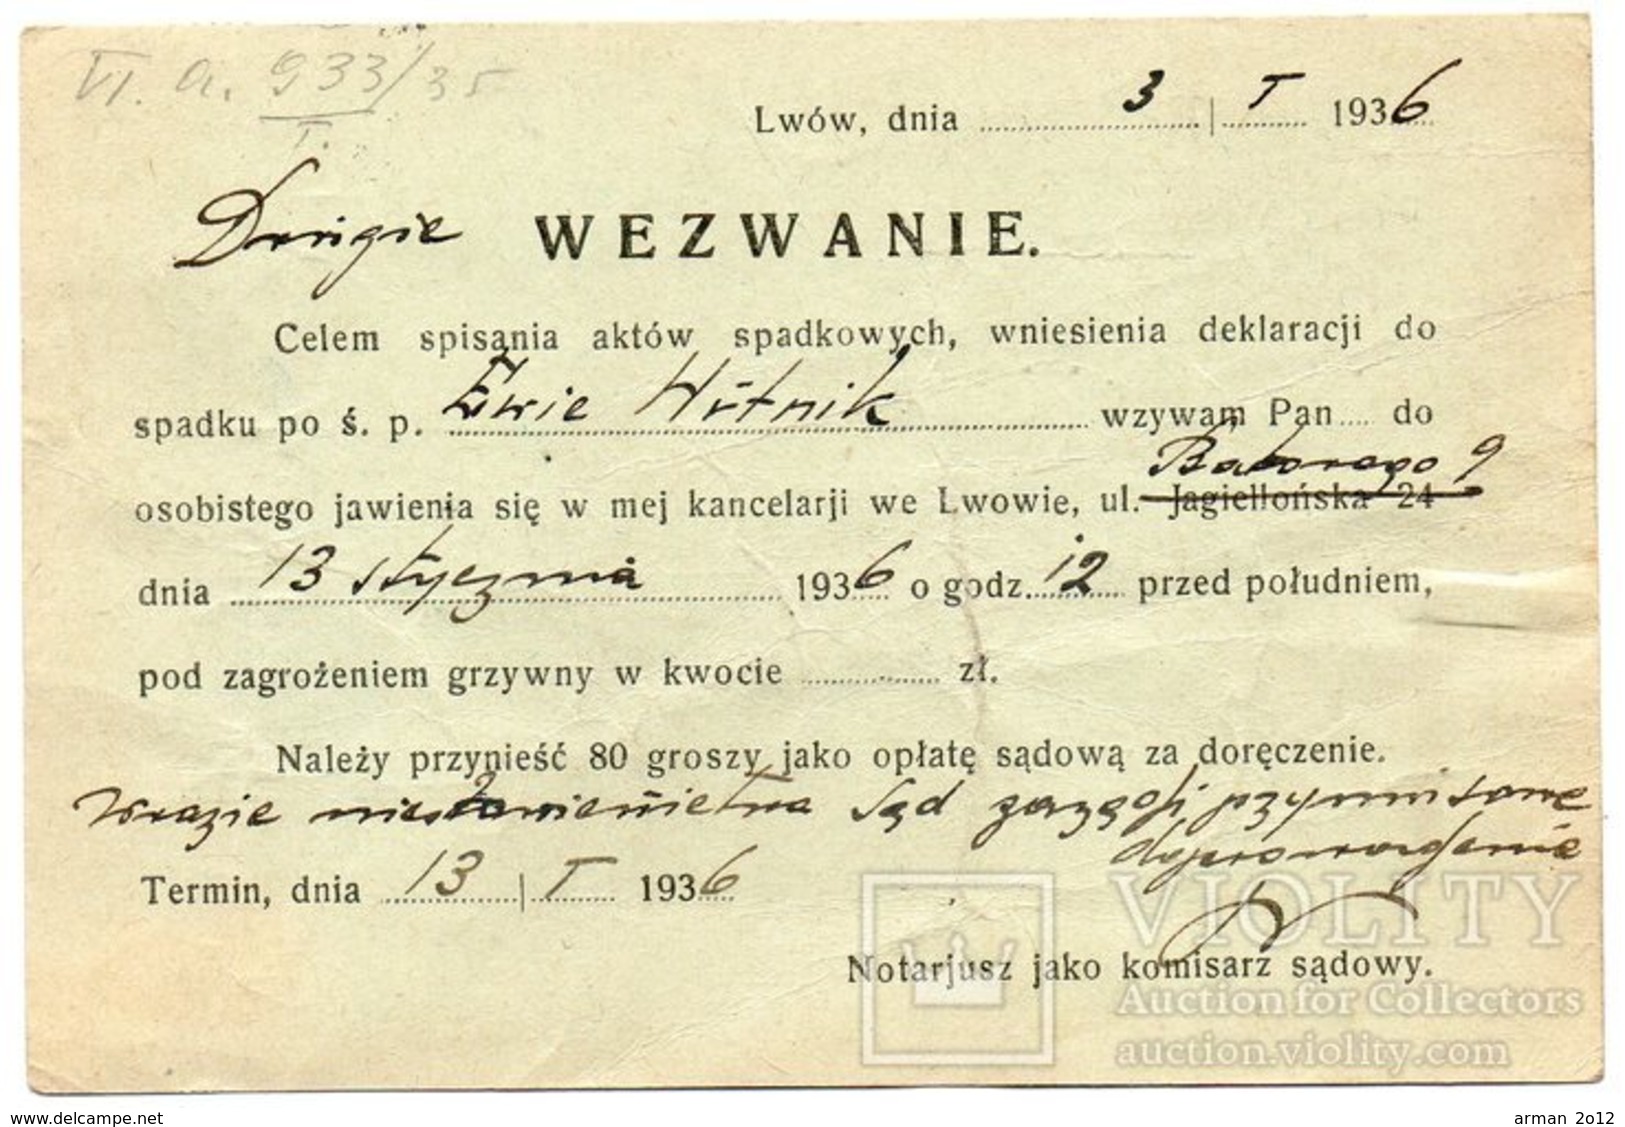 VI. a. 933/35
I.
Lwów, dnia 3 | I 1936
Drugie WEZWANIE.
Celem spisania aktów spadkowych, wniesienia deklaracji do
spadku po ś. p. Ewie Hütnik wzywam Pan.... do
Batorego 9
osobistego jawienia się w mej kancelarji we Lwowie, ul. Jagiellońska 24
dnia 13 stycznia 1936 o godz. 12 przed południem,
pod zagrożeniem grzywny w kwocie ............ zł.
Należy przynieść 80 groszy jako opłatę sądową za doręczenie.
W razie niestawiennictwa Sąd zarządzi przymusowe
doprowadzenie
Termin, dnia 13 | I 1936
Notarjusz jako komisarz sądowy.
VIOLITY
Auction for Collectors
auction.violity.com
www.delcampe.net
arman_2o12